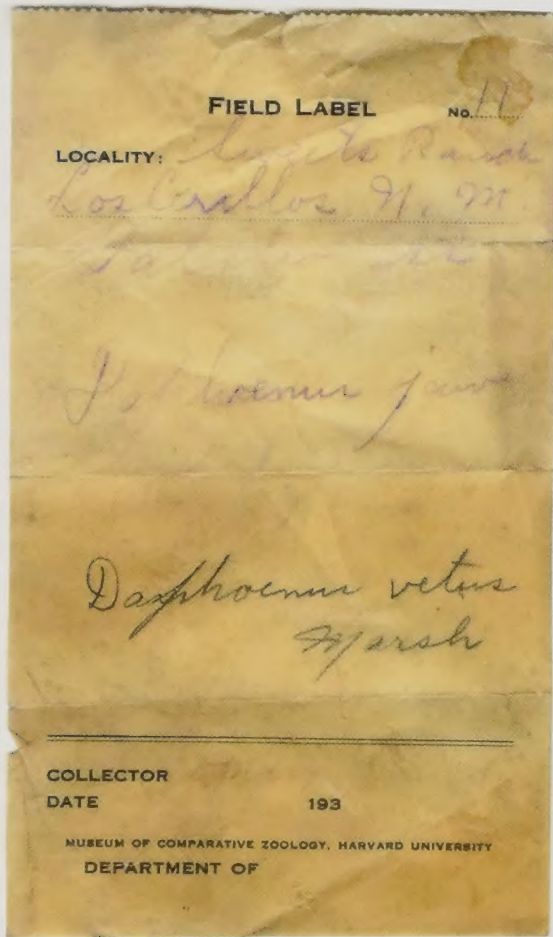 FIELD LABEL No. 11
LOCALITY: Ranch
Los Cerillos N. M.
jaw
Daphoenus vetus
Marsh
COLLECTOR
DATE 193
MUSEUM OF COMPARATIVE ZOOLOGY, HARVARD UNIVERSITY
DEPARTMENT OF